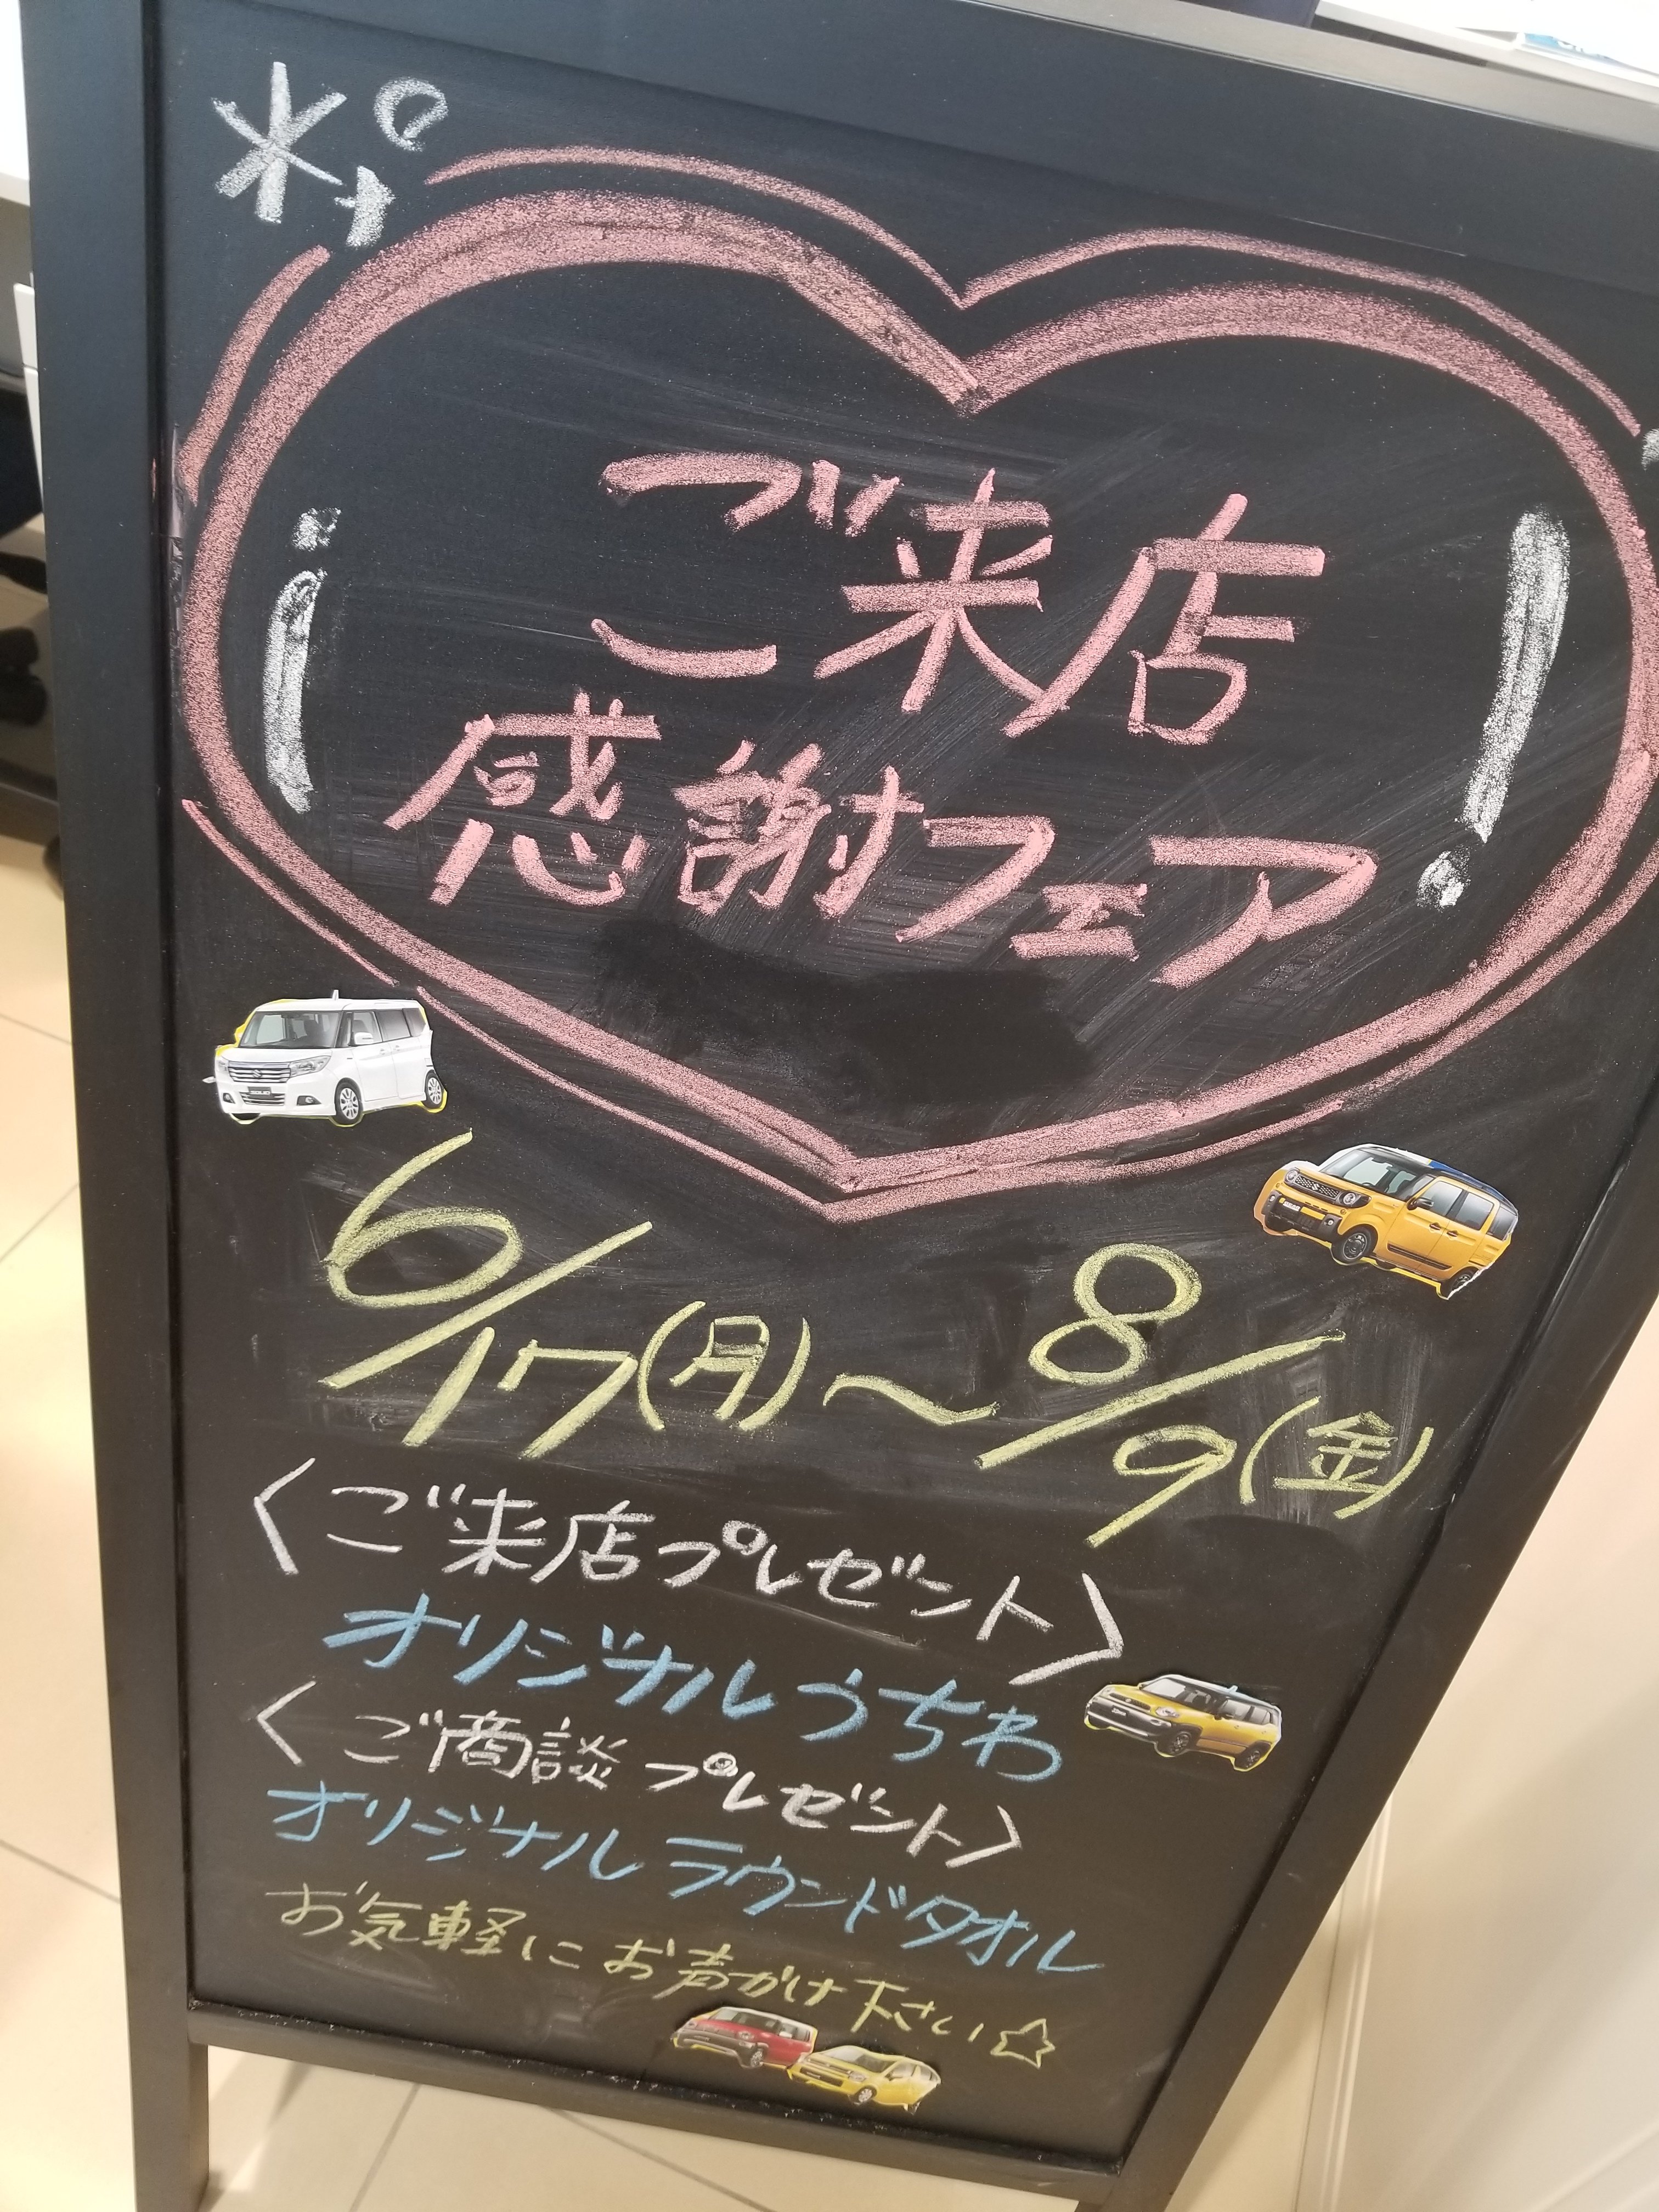 ご来店
感謝フェア
6/17(月)～8/9(金)
〈ご来店プレゼント〉
オリジナルうちわ
〈ご商談プレゼント〉
オリジナルラウンドタオル
お気軽にお声かけ下さい☆